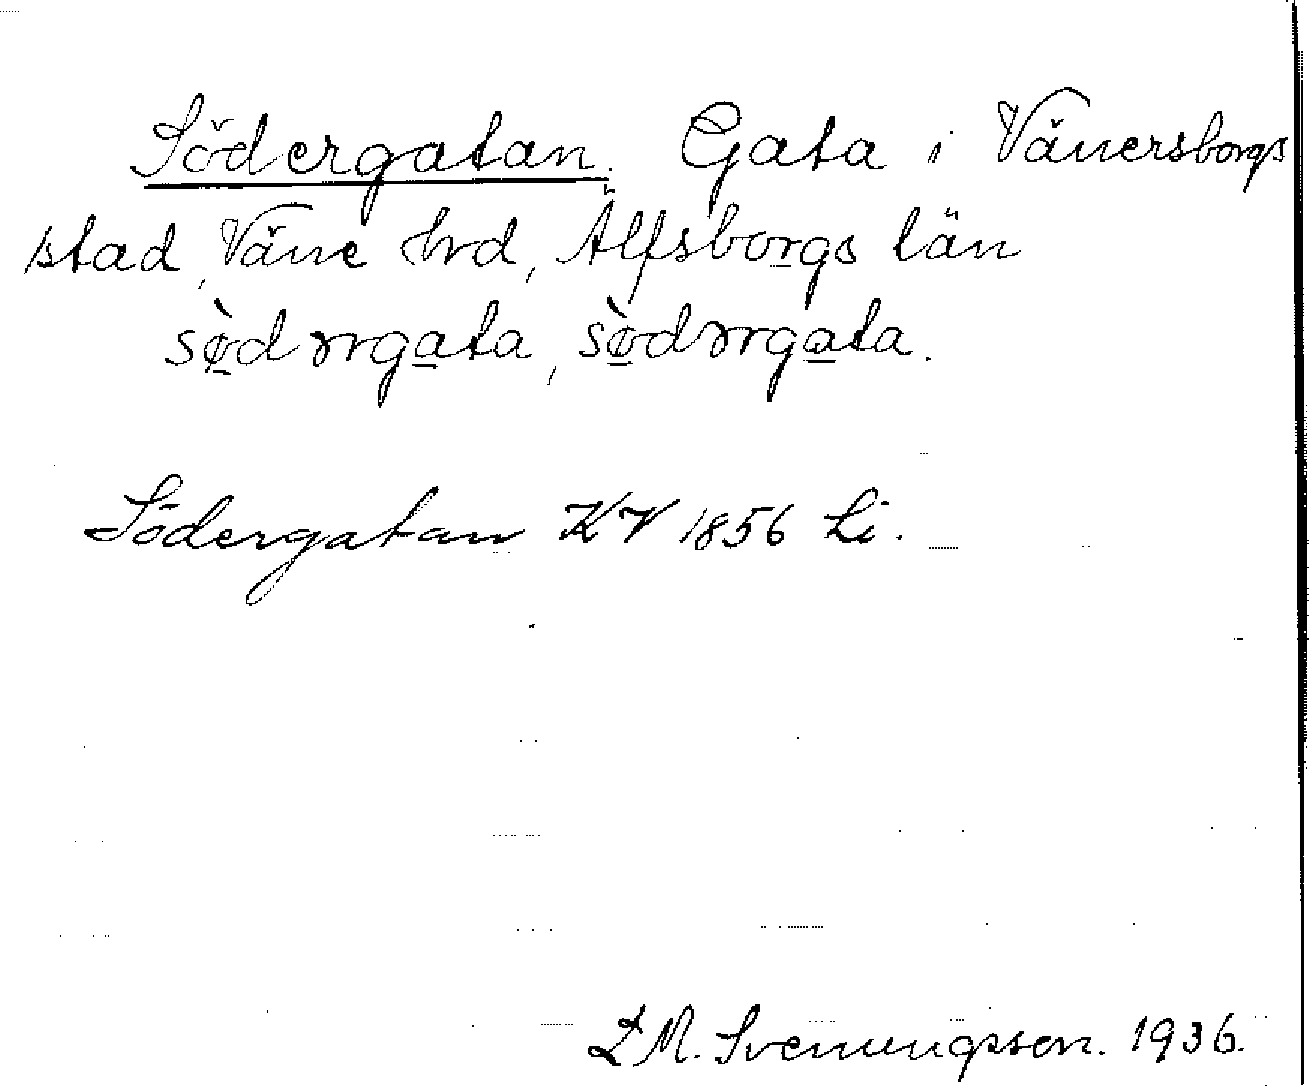 Södergatan. Gata i Vänersborgs
stad, Väne hrd, Älfsborgs län
sø̀dərgata, sø̀dərgata.
Södergatan KV 1856 Li.
L M. Svenungsson. 1936.